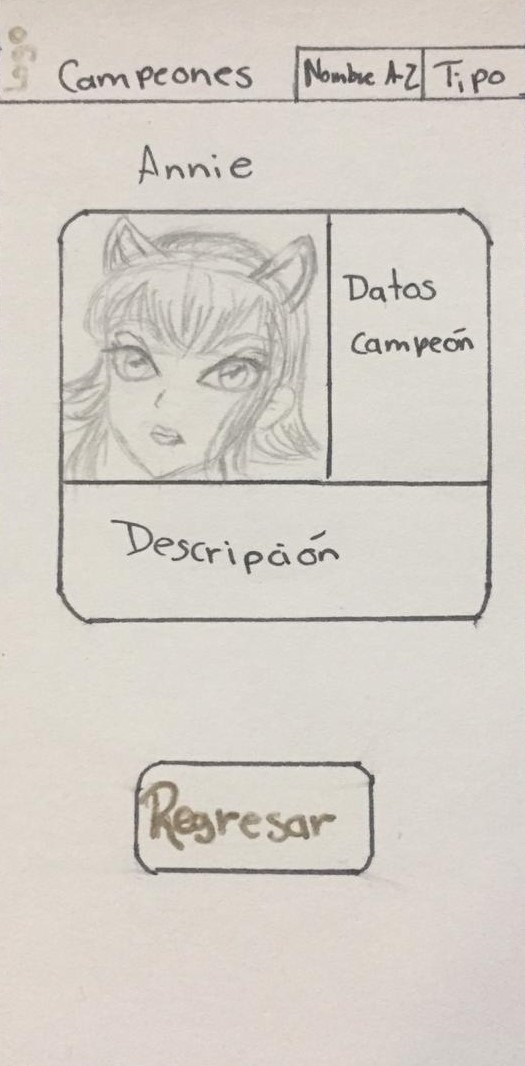 Campeones Nombre A-Z Tipo
Annie
Datos
Campeón
Descripción
Regresar